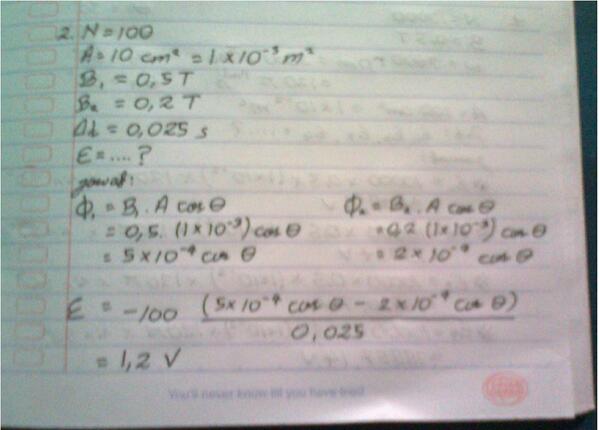 2. N = 100
A = 10 cm² = 1 x 10⁻³ m²
B₁ = 0,5 T
B₂ = 0,2 T
Δt = 0,025 s
ε = .... ?
jawab:
Φ₁ = B₁ . A cos θ
= 0,5 . (1 x 10⁻³) cos θ
= 5 x 10⁻⁴ cos θ
Φ₂ = B₂ . A cos θ
= 0,2 (1 x 10⁻³) cos θ
= 2 x 10⁻⁴ cos θ
ε = -100 (5 x 10⁻⁴ cos θ - 2 x 10⁻⁴ cos θ)
0,025
= 1,2 V
You'll never know till you have tried